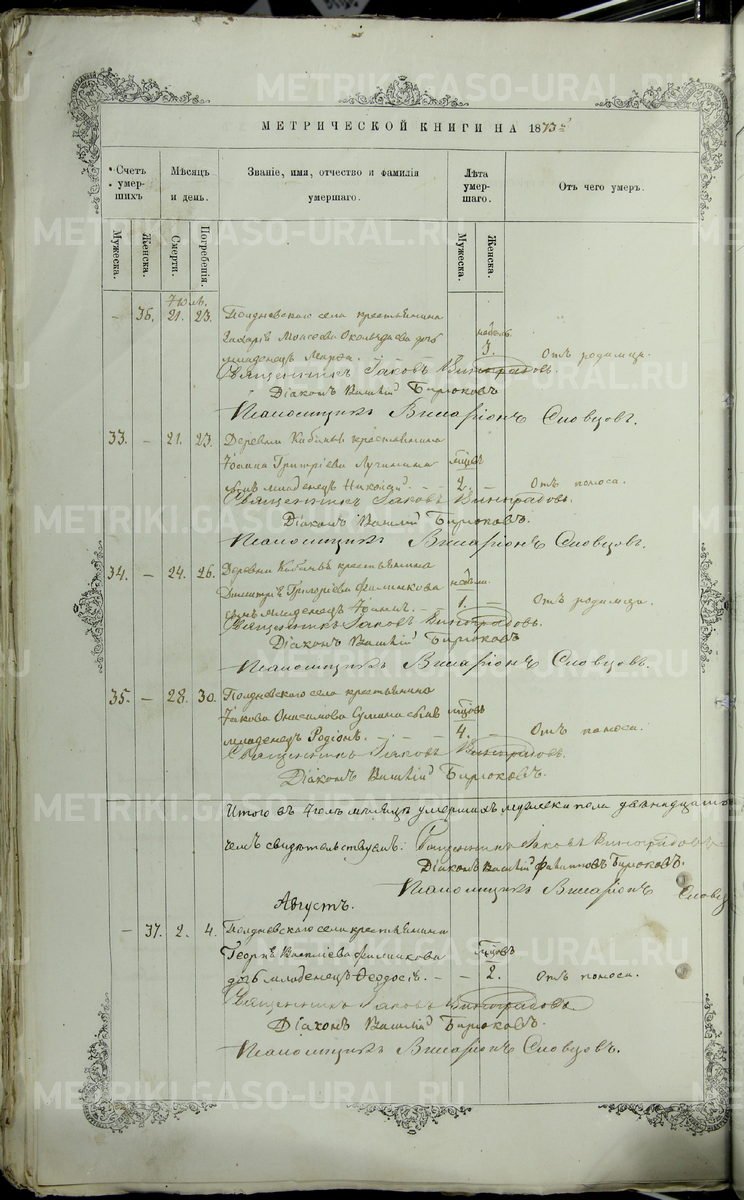 METRIKI.GASO-URAL.RU
МЕТРИЧЕСКОЙ КНИГИ НА 1873 г
Счет умерших
Мѣсяцъ и день.
Званіе, имя, отчество и фамилія умершаго.
Лѣта умершаго.
Отъ чего умеръ.
Мужеска.
Женска.
Смерти.
Погребенія.
Мужеска.
Женска.
Іюль.
– 36. 21. 23. Полдневскаго села крестьянина
Моисеева дочь
младенецъ Марѳа. 3. Отъ родимца.
Священникъ Іаковъ Виноградовъ.
Діаконъ Василій Бирюковъ
Псаломщикъ Виссаріонъ Словцовъ.
33. – 21. 23. Деревни крестьянина
Іоанна Григоріева Лучинина мѣсяцъ
сынъ младенецъ Николай. 2. – Отъ поноса.
Священникъ Іаковъ Виноградовъ.
Діаконъ Василій Бирюковъ.
Псаломщикъ Виссаріонъ Словцовъ.
34. – 24. 26. Деревни крестьянина
Димитрія Григоріева Филинкова недѣли
сынъ младенецъ Іоаннъ. 1. – Отъ родимца.
Священникъ Іаковъ Виноградовъ.
Діаконъ Василій Бирюковъ
Псаломщикъ Виссаріонъ Словцовъ.
35. – 28. 30. Полдневскаго села крестьянина
Іакова Онисимова Сумина сынъ мѣсяцовъ
младенецъ Родіонъ. 4. – Отъ поноса.
Священникъ Іаковъ Виноградовъ.
Діаконъ Василій Бирюковъ.
Итого въ Іюлѣ мѣсяцѣ умершихъ мужеска пола двенадцать
чемъ свидѣтельствуемъ: Священникъ Іаковъ Виноградовъ
Діаконъ Василій Филипповъ Бирюковъ.
Псаломщикъ Виссаріонъ Словцовъ
Августъ.
– 37. 2. 4. Полдневскаго села крестьянина
Георгія Василіева Филинкова мѣсяцовъ
дочь младенецъ Ѳеодосія. – – 2. Отъ поноса.
Священникъ Іаковъ Виноградовъ
Діаконъ Василій Бирюковъ.
Псаломщикъ Виссаріонъ Словцовъ.